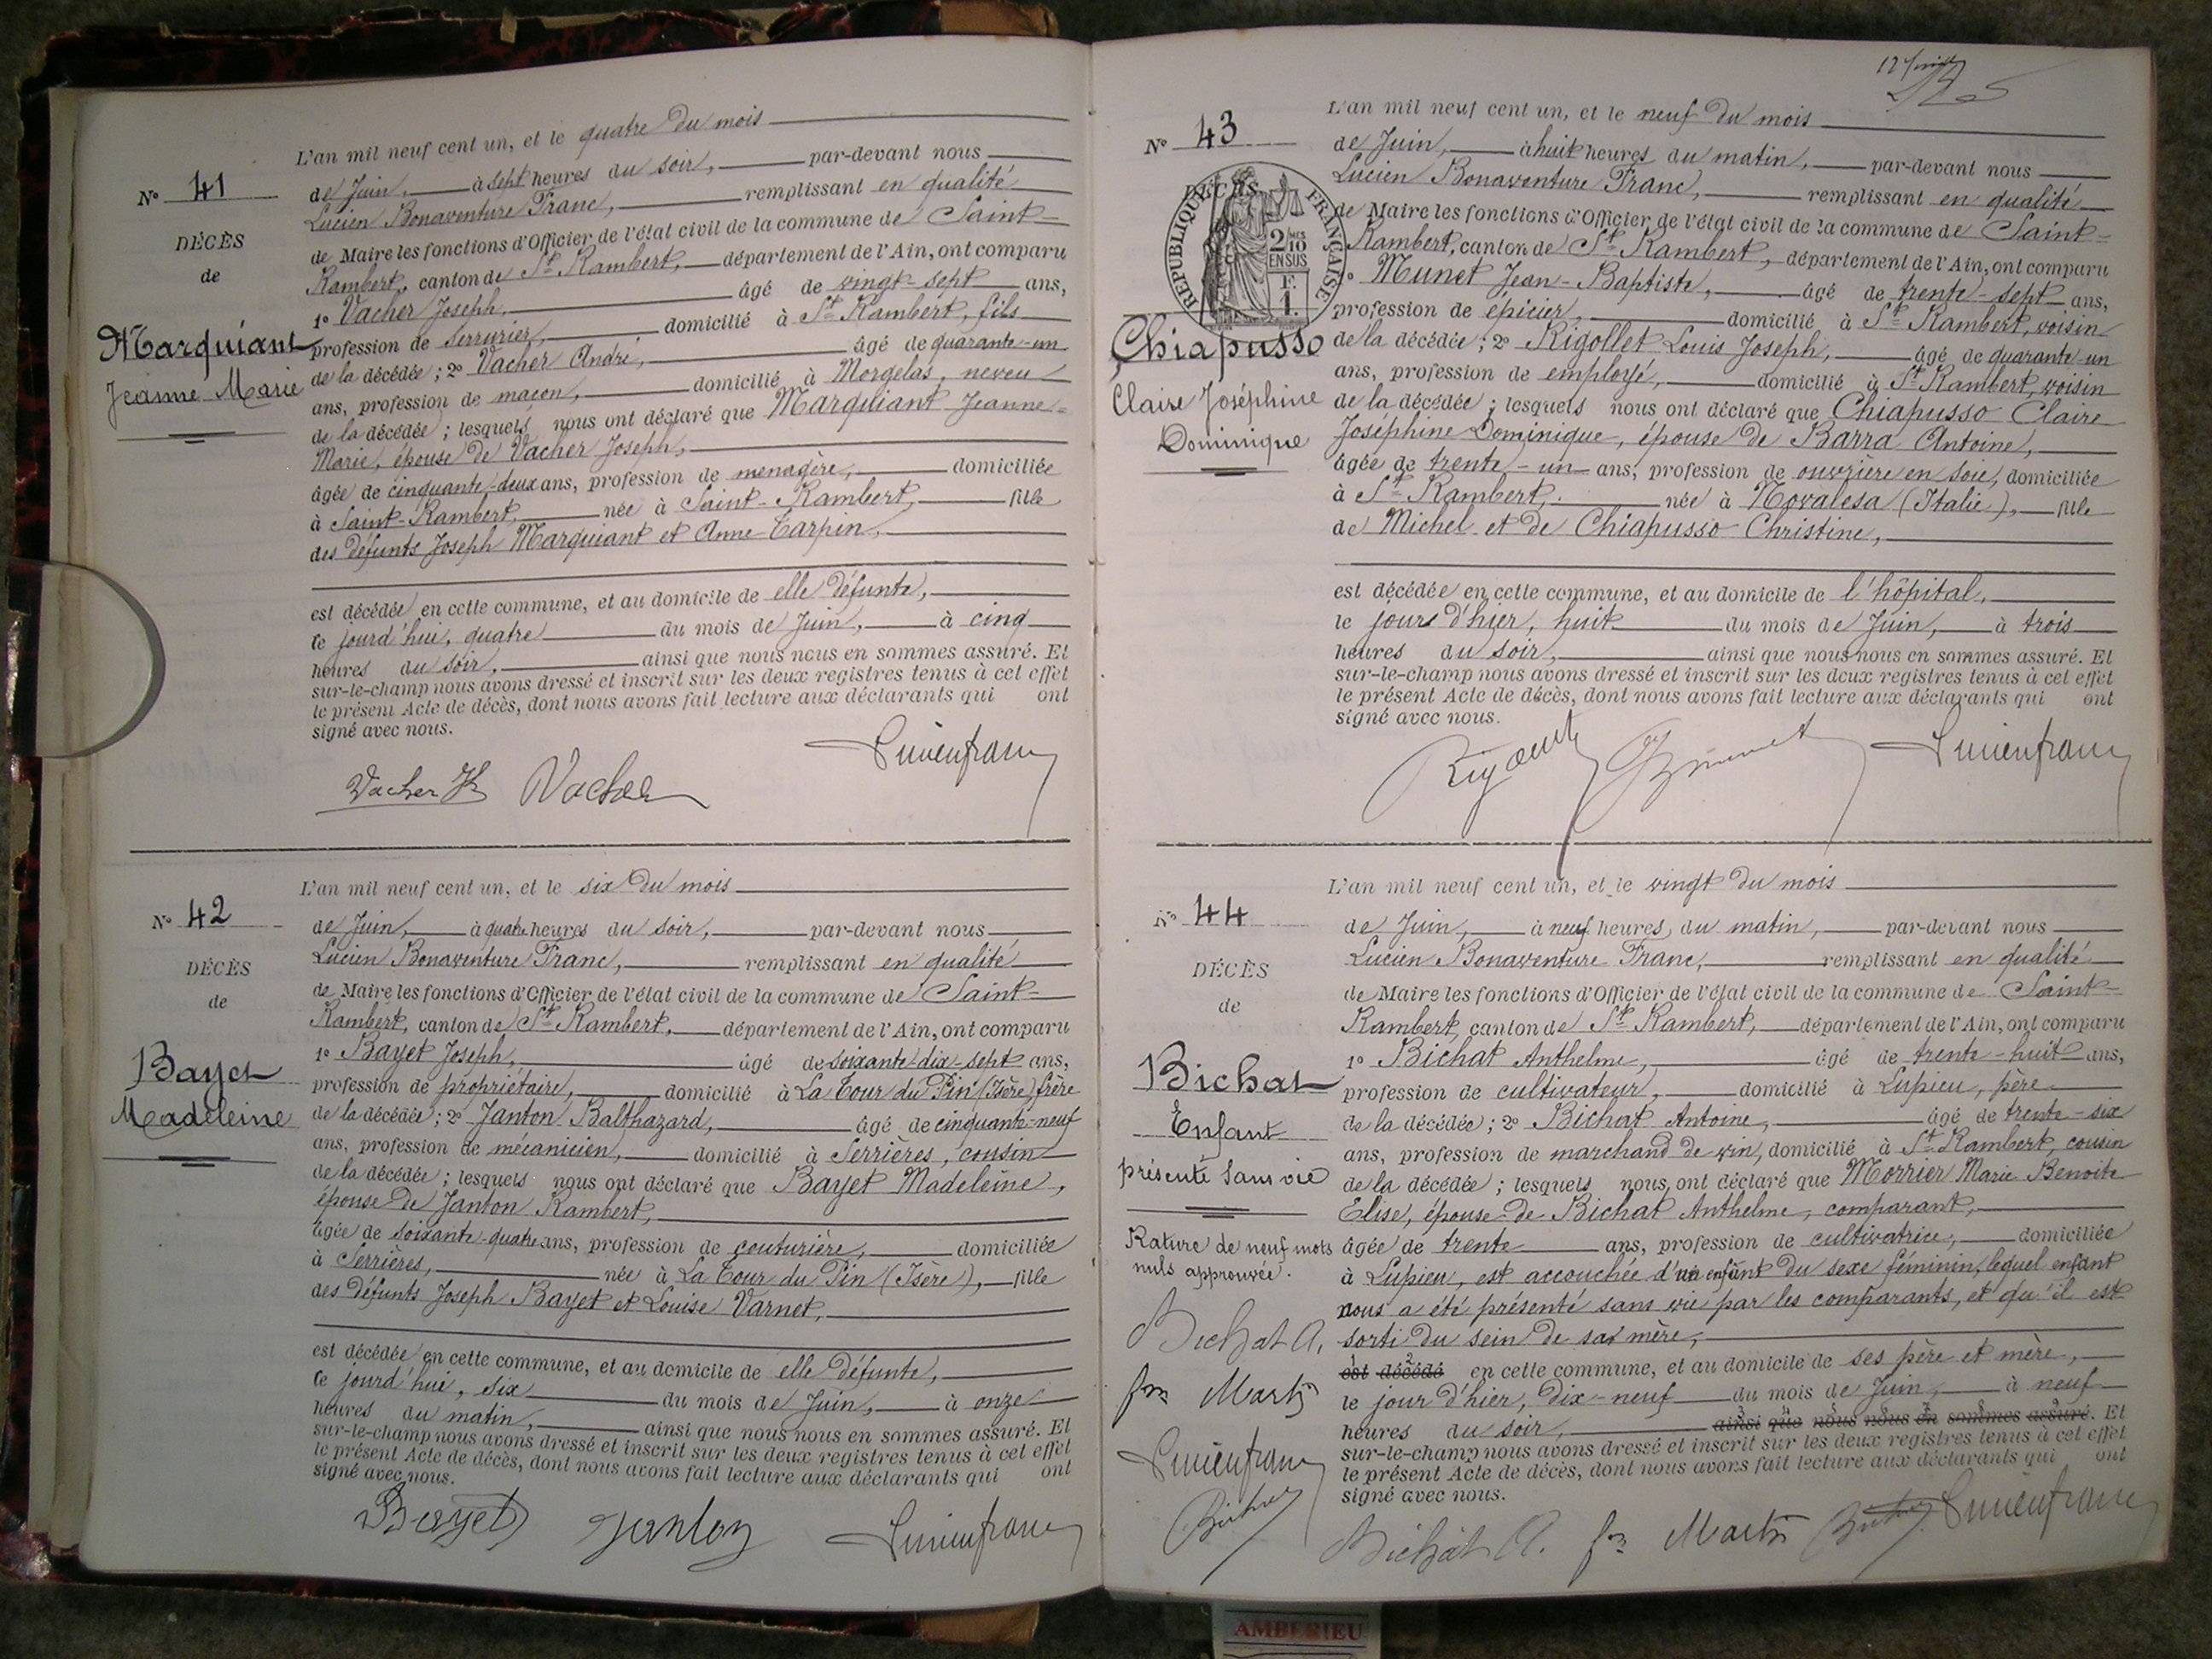 L'an mil neuf cent un, et le quatre du mois
de Juin, à sept heures du soir, par-devant nous
Nº 41
Lucien Bonaventure Franc, remplissant en qualité
DÉCÈS
de Maire les fonctions d'Officier de l'état civil de la commune de Saint-
de
Rambert, canton de St Rambert, département de l'Ain, ont comparu
1º Vacher Joseph, âgé de vingt-sept ans,
Marquiant
profession de serrurier, domicilié à St Rambert, fils
Jeanne Marie
de la décédée; 2º Vacher André, âgé de quarante-un
ans, profession de maçon, domicilié à Morgelas, neveu
de la décédée; lesquels nous ont déclaré que Marquiant Jeanne-
Marie, épouse de Vacher Joseph,
âgée de cinquante-deux ans, profession de menagère, domiciliée
à Saint-Rambert, née à Saint-Rambert, fille
des défunts Joseph Marquiant et Anne Tarpin,
est décédée en cette commune, et au domicile de elle défunte,
le jourd'hui, quatre du mois de Juin, à cinq
heures du soir, ainsi que nous nous en sommes assuré. Et
sur-le-champ nous avons dressé et inscrit sur les deux registres tenus à cet effet
le présent Acte de décès, dont nous avons fait lecture aux déclarants qui ont
signé avec nous.
Vacher Vacher Lucien franc
L'an mil neuf cent un, et le six du mois
Nº 42
de Juin, à quatre heures du soir, par-devant nous
DÉCÈS
Lucien Bonaventure Franc, remplissant en qualité
de
de Maire les fonctions d'Officier de l'état civil de la commune de Saint-
Rambert, canton de St Rambert, département de l'Ain, ont comparu
1º Bayet Joseph, âgé de soixante dix-sept ans,
Bayet
profession de propriétaire, domicilié à La Tour du Pin (Isère), frère
Madeleine
de la décédée; 2º Janton Balthazard, âgé de cinquante-neuf
ans, profession de mécanicien, domicilié à Serrières, cousin
de la décédée; lesquels nous ont déclaré que Bayet Madeleine,
épouse de Janton Rambert,
âgée de soixante-quatre ans, profession de couturière, domiciliée
à Serrières, née à La Tour du Pin (Isère), fille
des défunts Joseph Bayet et Louise Varnet,
est décédée en cette commune, et au domicile de elle défunte,
le jourd'hui, six du mois de Juin, à onze
heures du matin, ainsi que nous nous en sommes assuré. Et
sur-le-champ nous avons dressé et inscrit sur les deux registres tenus à cet effet
le présent Acte de décès, dont nous avons fait lecture aux déclarants qui ont
signé avec nous.
Bayet Janton Lucien franc
L'an mil neuf cent un, et le neuf du mois
Nº 43
de Juin, à huit heures du matin, par-devant nous
DÉCÈS
RÉPUBLIQUE FRANÇAISE
2 10MES EN SUS
F. 1.
Lucien Bonaventure Franc, remplissant en qualité
de Maire les fonctions d'Officier de l'état civil de la commune de Saint-
Rambert, canton de St Rambert, département de l'Ain, ont comparu
1º Munet Jean-Baptiste, âgé de trente-sept ans,
profession de épicier, domicilié à St Rambert, voisin
Chiapusso
Claire Joséphine
Dominique
de la décédée; 2º Rigollet Louis Joseph, âgé de quarante-un
ans, profession de employé, domicilié à St Rambert, voisin
de la décédée; lesquels nous ont déclaré que Chiapusso Claire
Joséphine Dominique, épouse de Barra Antoine,
âgée de trente-un ans, profession de ouvrière en soie, domiciliée
à St Rambert, née à Novalesa (Italie), fille
de Michel et de Chiapusso Christine,
est décédée en cette commune, et au domicile de l'hôpital,
le jours d'hier, huit du mois de Juin, à trois
heures du soir, ainsi que nous nous en sommes assuré. Et
sur-le-champ nous avons dressé et inscrit sur les deux registres tenus à cet effet
le présent Acte de décès, dont nous avons fait lecture aux déclarants qui ont
signé avec nous.
Lucien franc
L'an mil neuf cent un, et le vingt du mois
Nº 44
de Juin, à neuf heures du matin, par-devant nous
DÉCÈS
Lucien Bonaventure Franc, remplissant en qualité
de
de Maire les fonctions d'Officier de l'état civil de la commune de Saint-
Rambert, canton de St Rambert, département de l'Ain, ont comparu
1º Bichat Anthelme, âgé de trente-huit ans,
Bichat
Enfant
présenté sans vie
profession de cultivateur, domicilié à Lupieu, père
de la décédée; 2º Bichat Antoine, âgé de trente-six
ans, profession de marchand de vin, domicilié à St Rambert, cousin
de la décédée; lesquels nous ont déclaré que Morrier Marie Benoite
Elise, épouse de Bichat Anthelme, comparant,
Rature de neuf mots
nuls approuvée.
âgée de trente ans, profession de cultivatrice, domiciliée
à Lupieu, est accouchée d'un enfant du sexe féminin, lequel enfant
nous a été présenté sans vie par les comparants, et qu'il est
sorti du sein de sa mère,
Bichat A,
est décédé en cette commune, et au domicile de ses père et mère,
le jour d'hier, dix-neuf du mois de Juin, à neuf
heures du soir, ainsi que nous nous en sommes assuré. Et
Lucien franc
sur-le-champ nous avons dressé et inscrit sur les deux registres tenus à cet effet
le présent Acte de décès, dont nous avons fait lecture aux déclarants qui ont
signé avec nous.
Bichat A. Lucien franc
AMBERIEU